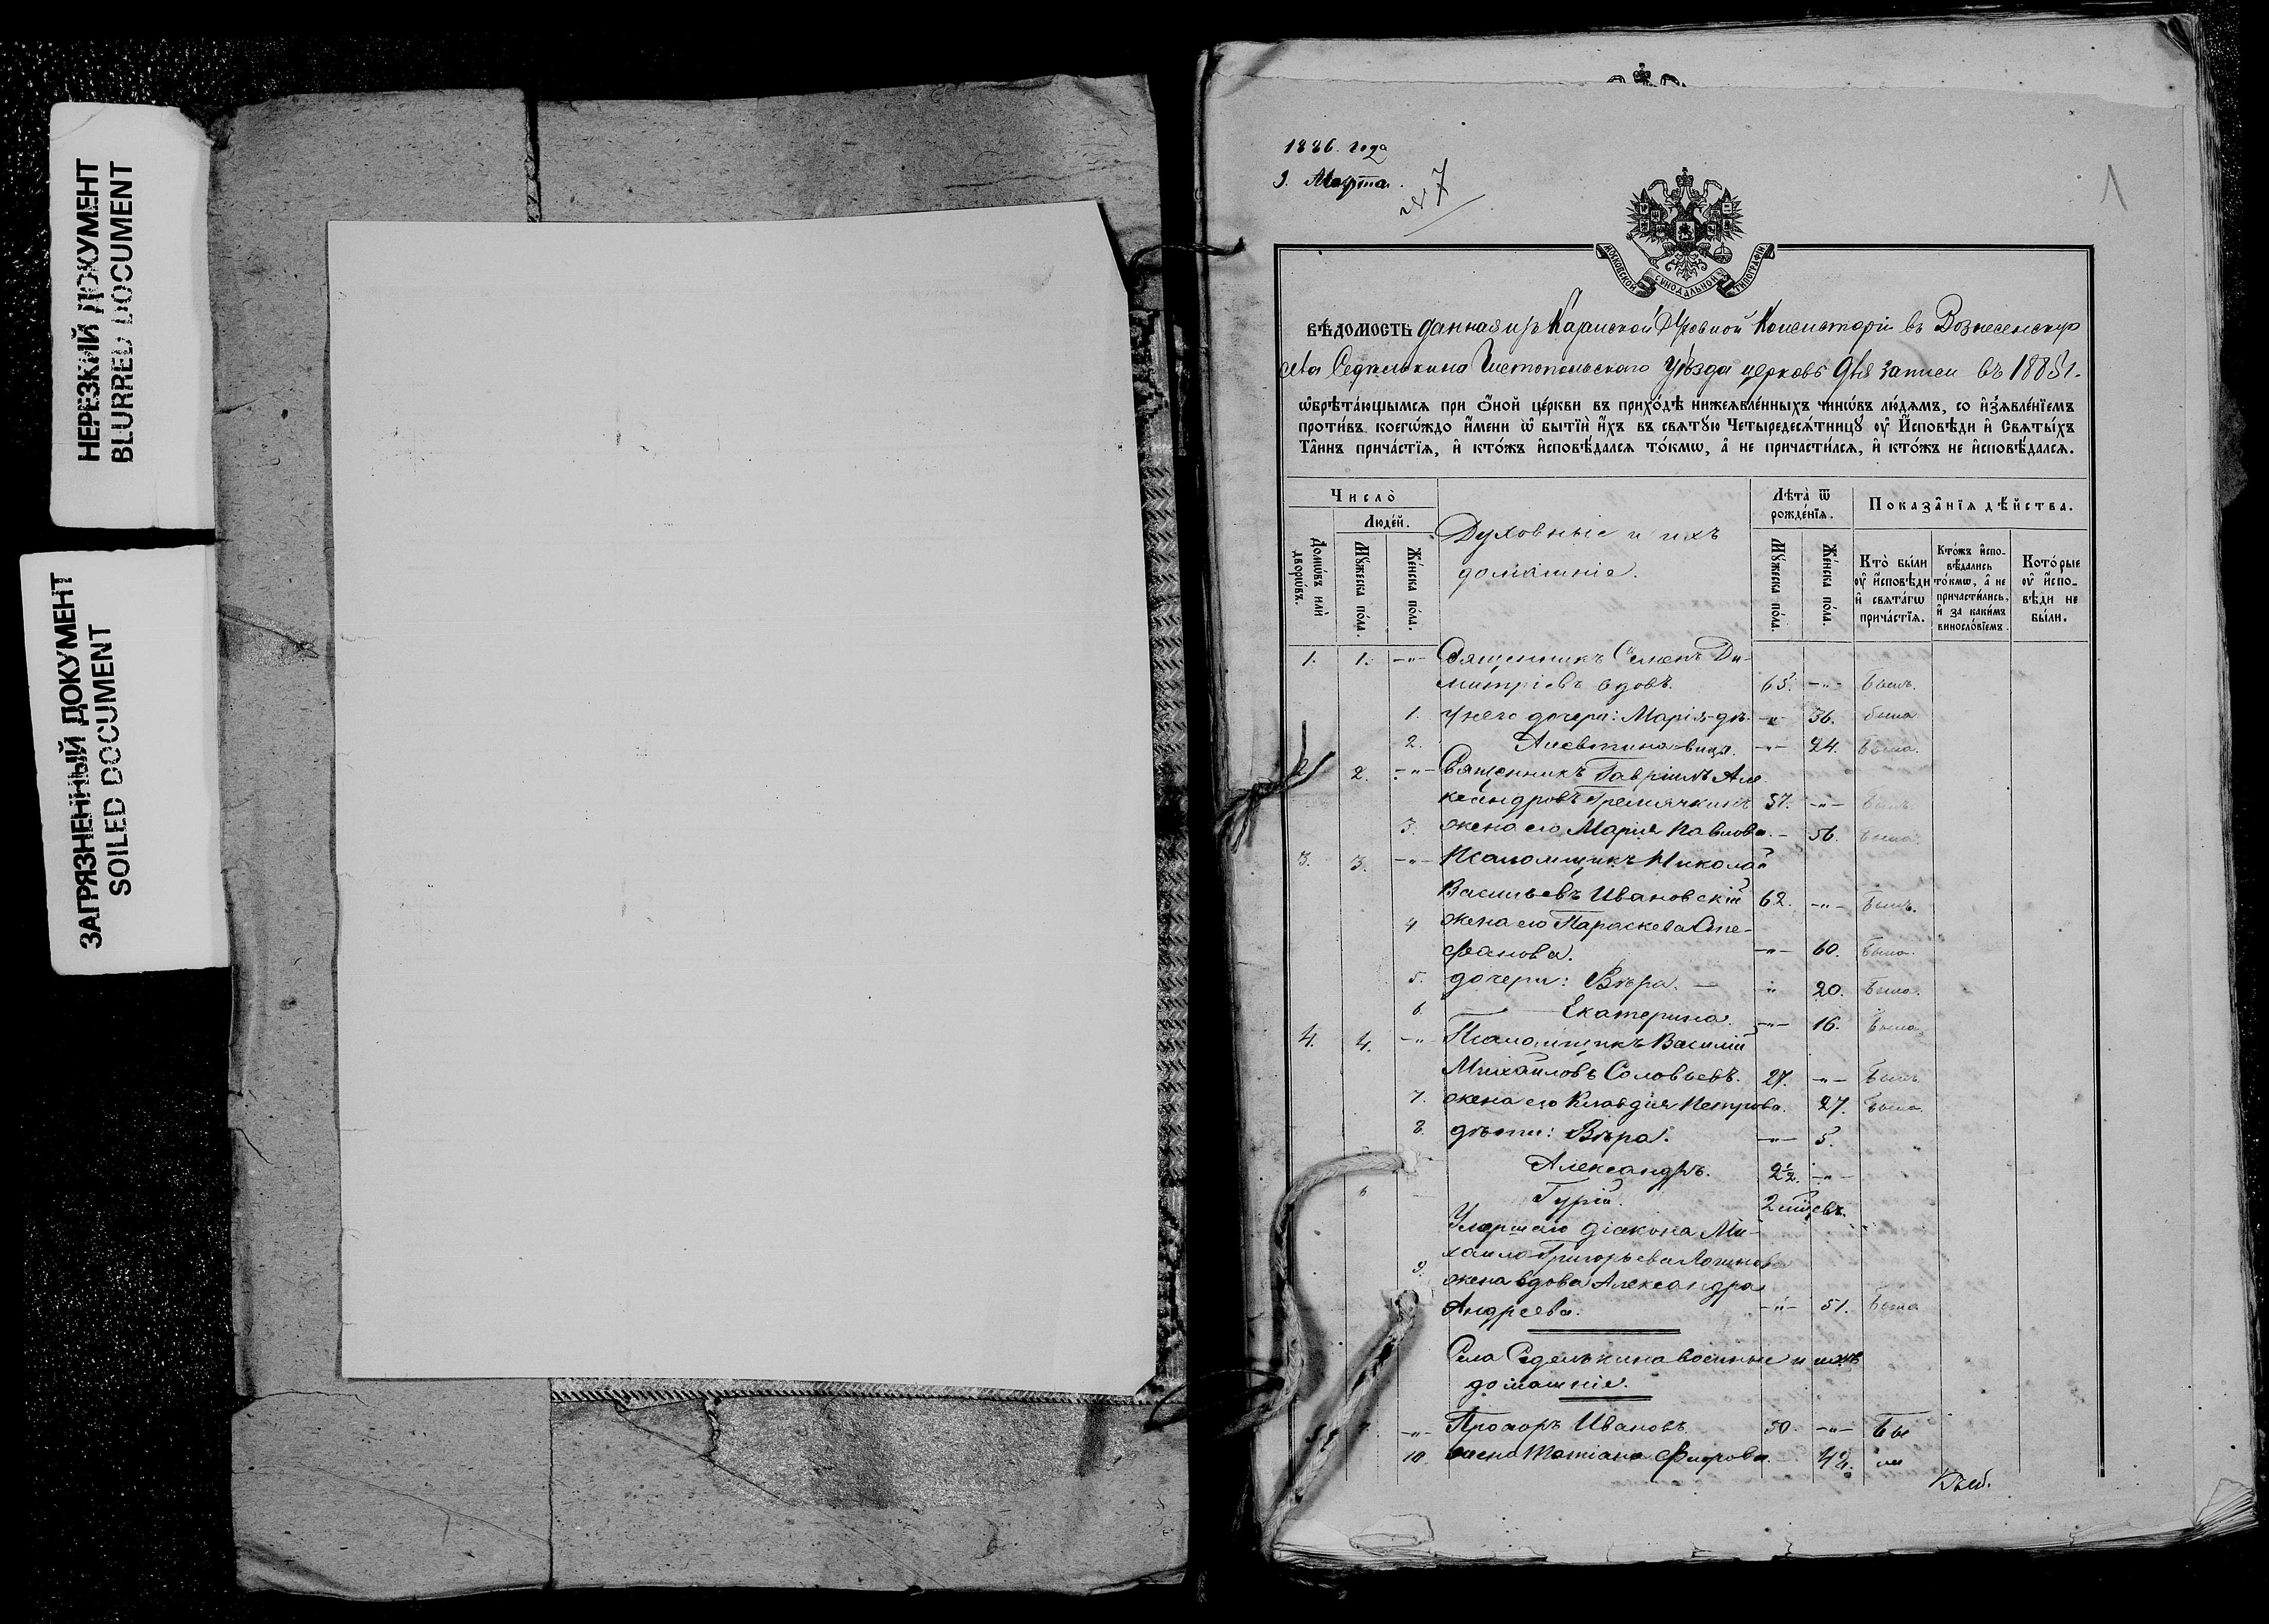 НЕРЕЗКИЙ ДОКУМЕНТ
BLURRED DOCUMENT
ЗАГРЯЗНЕННЫЙ ДОКУМЕНТ
SOILED DOCUMENT
1886. года
9. Марта.
№ 7
1
МОСКОВСКОЙ СИНОДАЛЬНОЙ ТИПОГРАФІИ
ВѢДОМОСТЬ данная изъ Казанской Духовной Консисторіи въ Вознесенскую
села Седѣлькина Чистопольскаго Уѣзда церковь для записи въ 1885 г.
ѡбрѣта́ющымсѧ при Ѻ҆́ной це́ркви въ прихо́дѣ нижеꙗвле́нныхъ чинѡ́въ лю́дѧмъ, со и҆з̾ꙗвле́нїемъ
проти́въ коегѡ́ждо и҆́мени ѡ҆ бытїѝ и҆́хъ въ свѧтꙋ́ю Четыредесѧ́тницꙋ ᲂу҆ И҆́сповѣди и҆ Свѧты́хъ
Та̑инъ прича́стїѧ, и҆ кто́жъ и҆сповѣ́далсѧ то́кмѡ, а҆ не причасти́лсѧ, и҆ кто́жъ не и҆сповѣ́далсѧ.
Число̀
Люде́й.
Домѡ́въ илѝ дворѡ́въ.
Мꙋ́жеска по́ла.
Же́нска по́ла.
Духовные и ихъ
домашніе.
Лѣта̀ ѿ рожде́нїѧ.
Мꙋ́жеска по́ла.
Же́нска по́ла.
Показа̑нїѧ дѣ́йства.
Кто̀ бы́ли ᲂу҆ и҆́сповѣди и҆ свѧта́гѡ прича́стїѧ.
Кто́жъ и҆спо-вѣ́дались то́кмѡ, а҆ не причасти́лись, и҆ за каки́мъ винослові́емъ.
Кото́рые ᲂу҆ и҆́спо-вѣди не бы́ли.
1. 1. -"- Священникъ Симеонъ Ди-
митріевъ вдовъ. 65. -"- былъ.
1. У него дочери: Марія-дѣ- -"- 36. была
2. Алевтина-вица. -"- 24. была.
2 2. -"- Священникъ Гавріилъ Але
ксандровъ Гремячкинъ 57. -"- былъ
3. жена его Марія Павлова. - 56. была
3. 3. -"- Псаломщикъ Николай
Васильевъ Ивановскій 62. -"- былъ.
4 жена его Параскева Сте-
фанова. -"- 60. была.
5. дочери: Вѣра. — " 20. была.
6. Екатерина. -"- 16. была
4. 4. -" Псаломщикъ Василій
Михайловъ Соловьевъ. 27. -"- былъ
7. жена его Клавдія Петрова. 27. была
8. дѣти: Вѣра. -"- 5. "
Александръ. 2½. -"-
6 Гурій. 2 мѣсев.
Умершаго діакона Ми-
хаила Григорьева Логинова
9. жена вдова Александра
Андреева. -"- 51. была
Села Седелькина военные и ихъ
домашніе.
-"- Прохоръ Ивановъ 50. -"- Бы
10. жена Татіана 42. ли